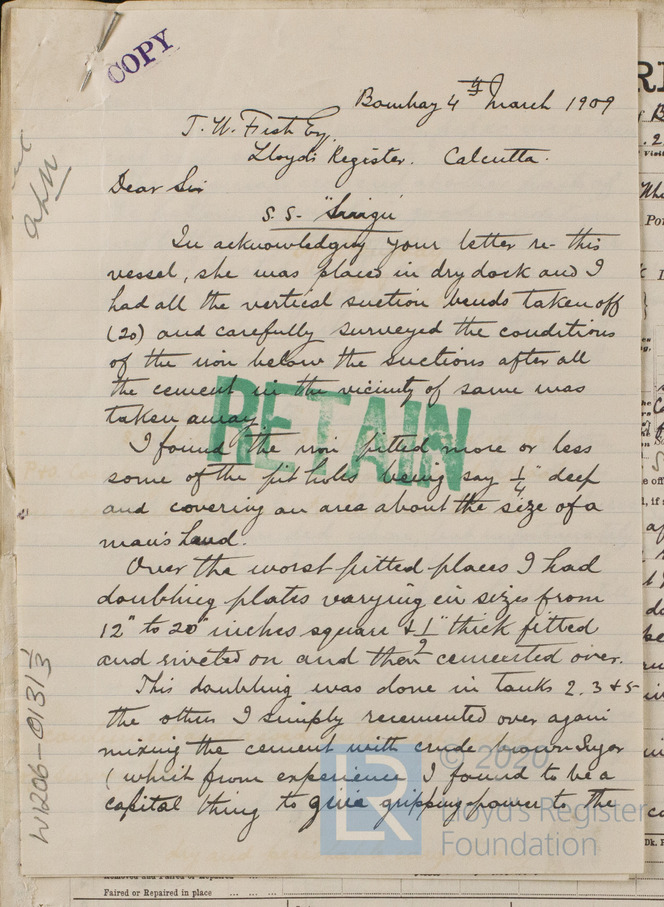 COPY
Bombay 4th March 1909
J. W. Fish Esq.
Lloyds Register. Calcutta.
Dear Sir
S.S.
In acknowledging your letter re- this
vessel, she was placed in dry dock and I
had all the vertical suction bends taken off
(20) and carefully surveyed the conditions
of the iron below the suctions after all
the cement in the vicinity of same was
taken away.
RETAIN
I found the iron pitted more or less
some of the pit holes being say 1/4" deep
and covering an area about the size of a
man's hand.
Over the worst pitted places I had
doubling plates varying in sizes from
12" to 20" inches square & 1/2" thick fitted
and riveted on and then cemented over.
This doubling was done in tanks 2. 3 & 5
the others I simply recemented over again
mixing the cement with crude brown Sugar
(which from experience I found to be a
capital thing to give gripping power to the
W1206-0131 1/3
LR
© 2020
Lloyd's Register
Foundation
Faired or Repaired in place